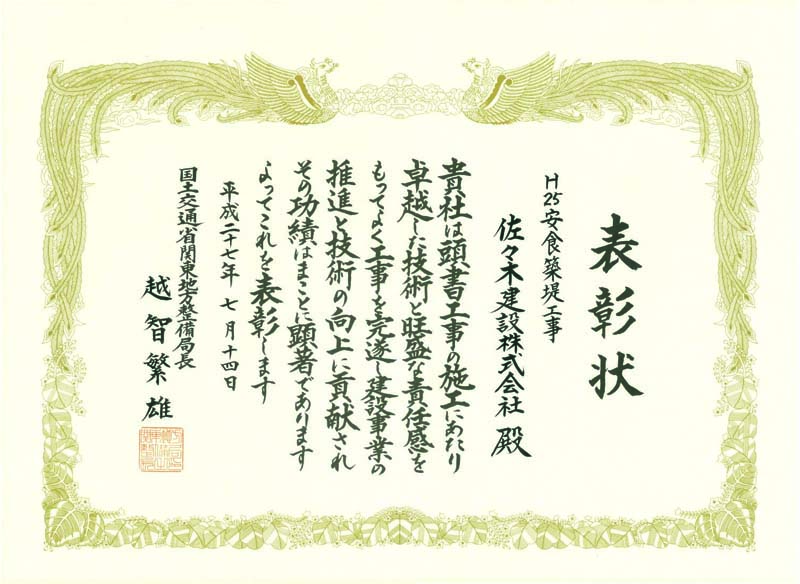 表彰状
H25安食築堤工事
佐々木建設株式会社 殿
貴社は頭書工事の施工にあたり
卓越した技術と旺盛な責任感を
もってよく工事を完遂し建設事業の
推進と技術の向上に貢献され
その功績はまことに顕著であります
よってこれを表彰します
平成二十七年 七月十四日
国土交通省関東地方整備局長
越智繁雄